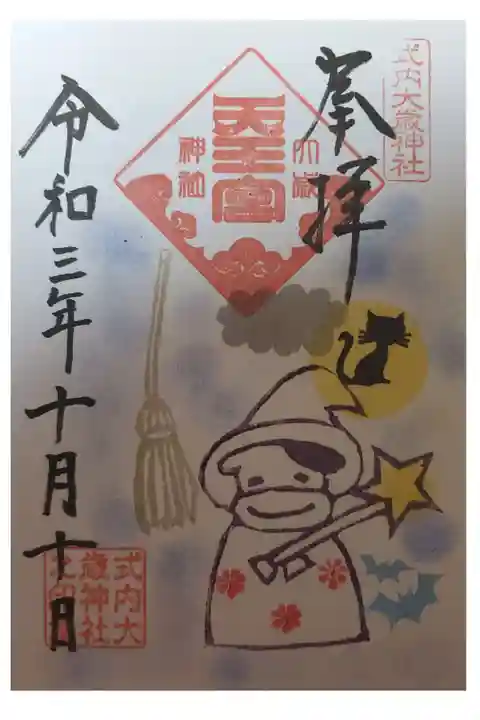 式内大歳神社
奉拝
大歳
天王宮
神社
令和三年十月十日
式内大
歳神社
之印